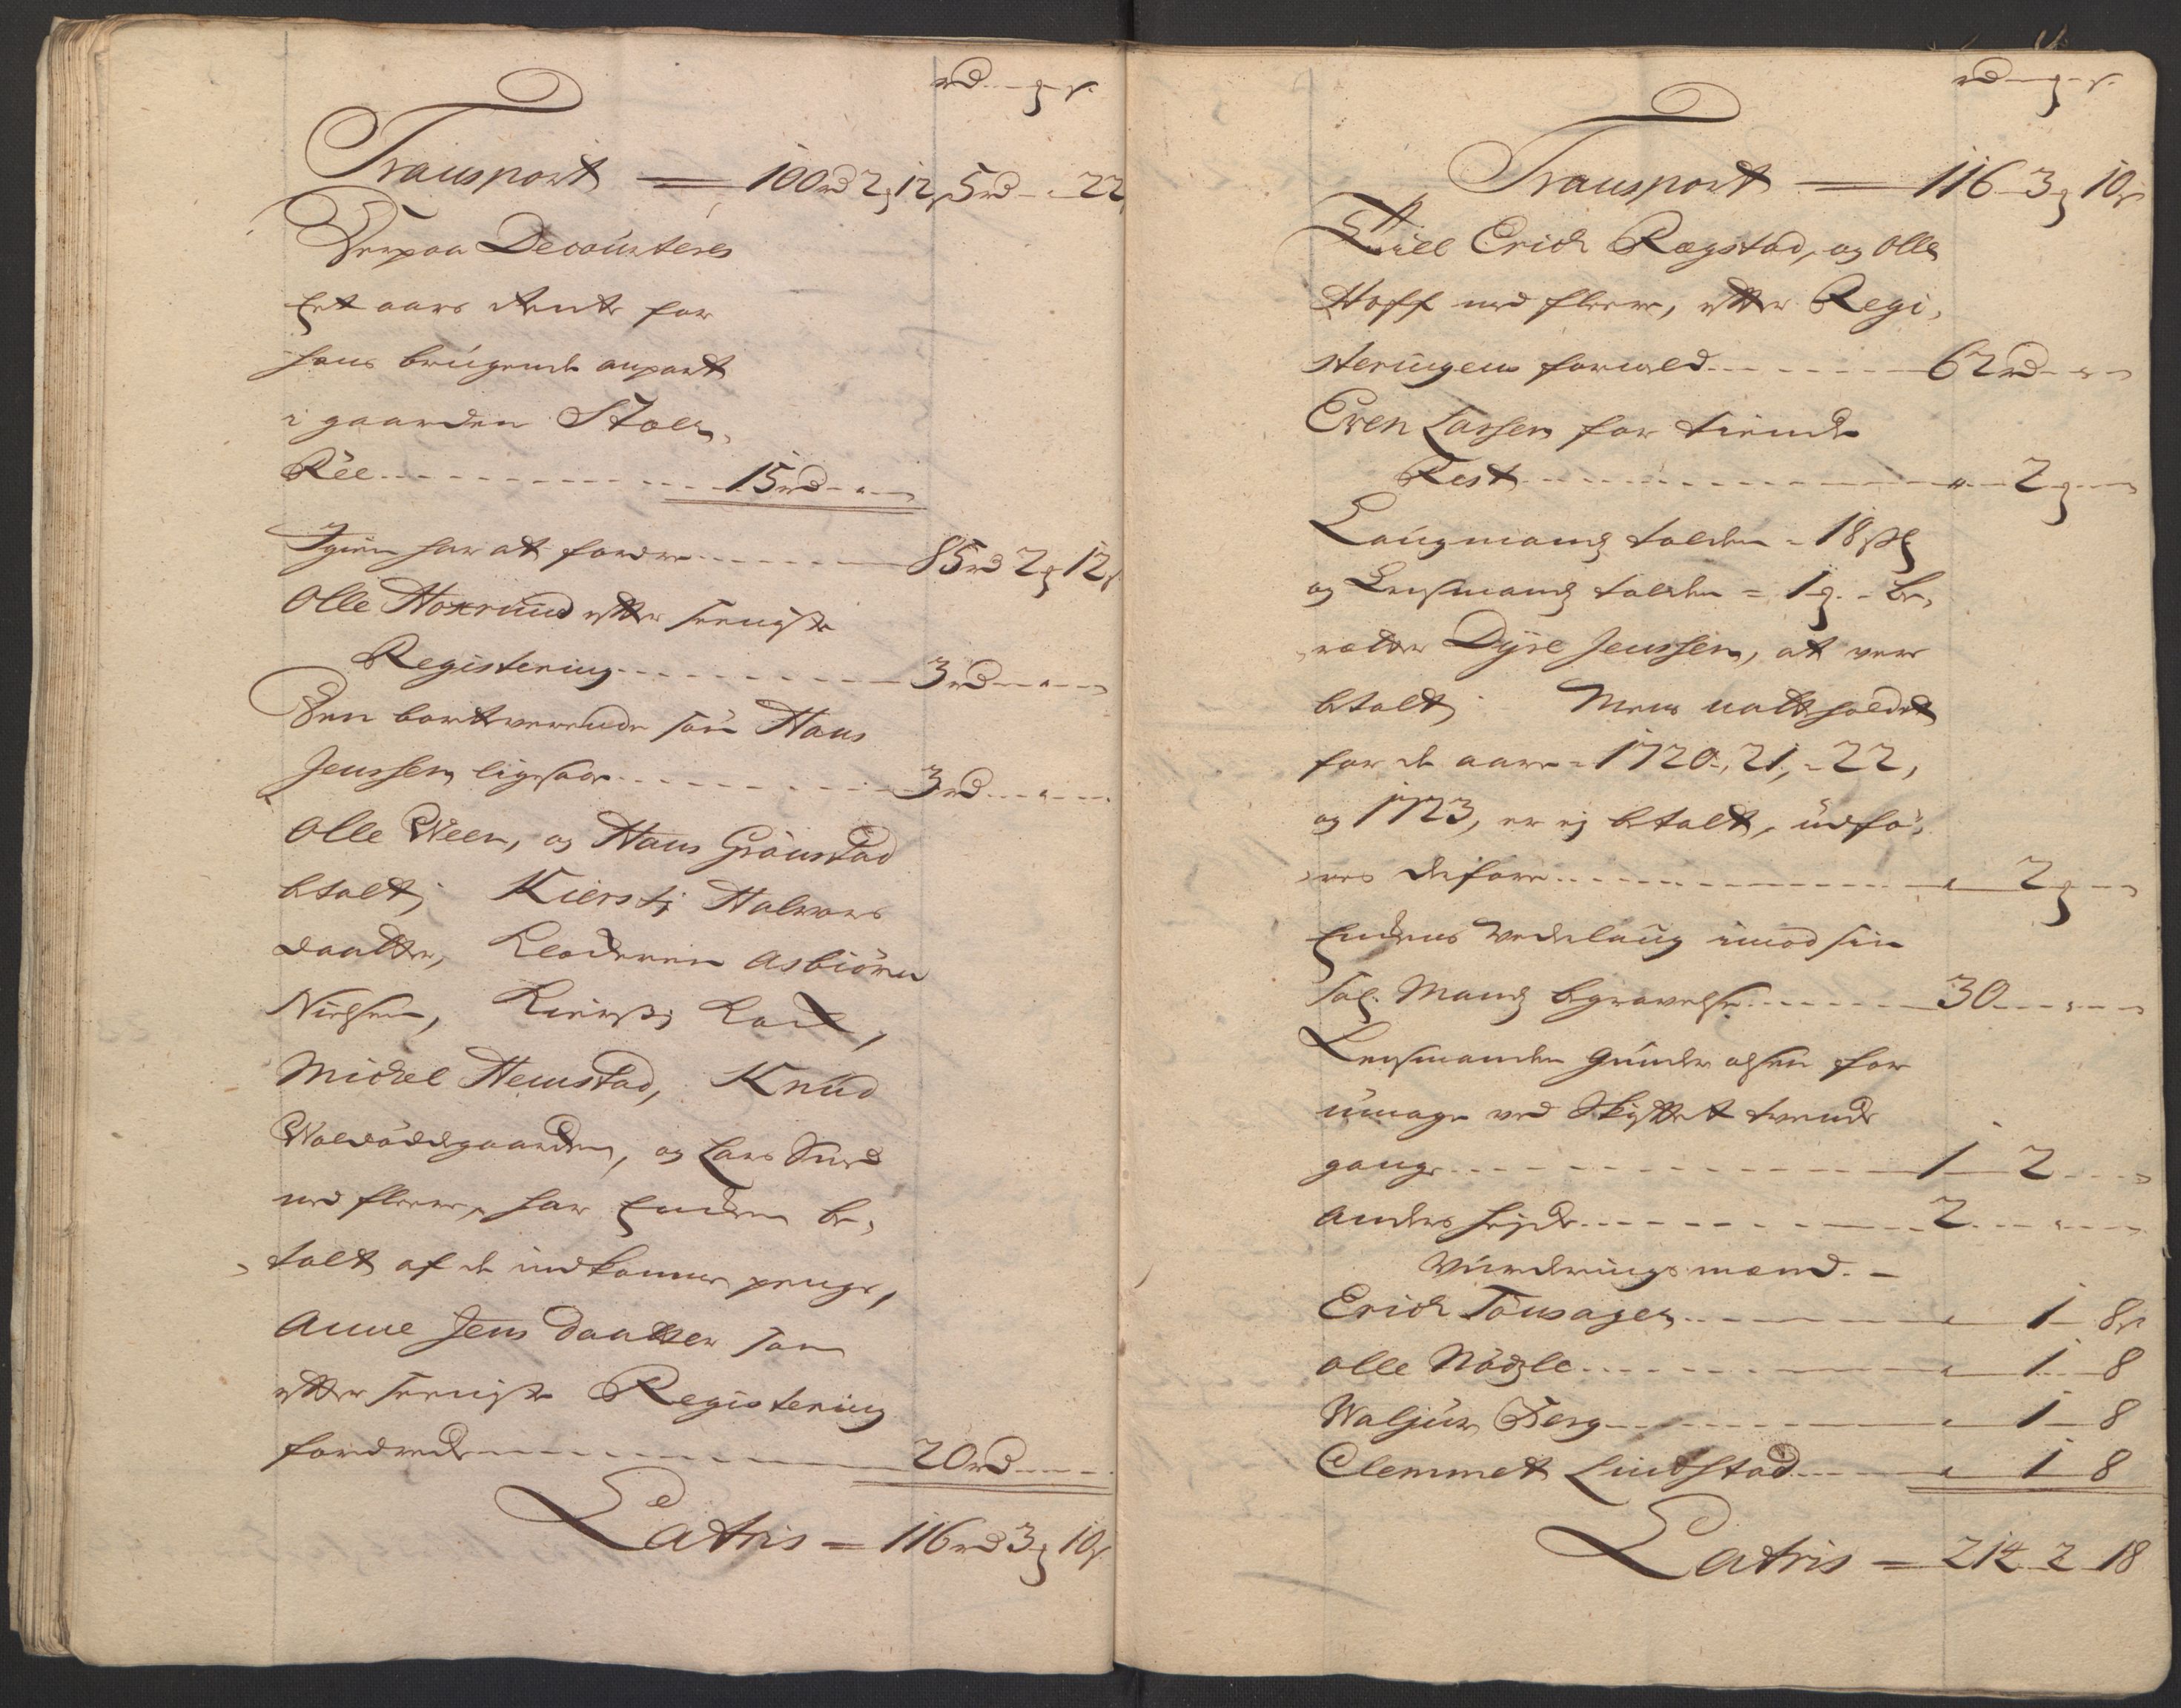 rd q s.
Transport = 100 rd 2 q 12 s 5 rd - 22
Derpaa Decourteres
Et aars Rente for
hans brugende anpart
i gaarden Stoer,
Ree 15 rd
Igien har at fordre 85 rd 2 q 12 s
Olle Hoxrud efter seeniste
Registering 3 rd
Den bortverende Søn Hans
Jenssen ligesaa 3 rd
Olle Ween, og Hans Grönstad
betalt; Kiersti Halvors
daatter, Asbiörn
Nielsen, Kiersti
Michel Hemstad, Knud
og Lars
med fleere, har Enchen be,
talt af de indkomne penge,
Anne Jens Daatter som
efter seeniste Registering
fordrede 20 rd
Lateris = 116 rd 3 q 10 s
rd q s.
Transport = 116 3 q 10 s
Till Erich Rogstad, og Olle
Hoff med fleere, efter Regi,
steringens formeld 62 rd
Even Larsen for tiende
Rest 2 q
Laugmands tolden - 18 s
og Lensmands tolden = 1 q. - be,
retter Dyre Jenssen, at vere
betalt; Mens natteholdet
for de aar - 1720, 21, - 22,
og 1723, er ej betalt, udfö,
res derfore 2 q
Enchens Vederlaug imod sin
Sal. Mands begravelse 30
Lensmanden Gunder Olsen for
umage ved Skiftet tvende
gange 1 2
Anders 2
Vurderings mænd. -
Erich Tönsager 1 8 s
Olle Nögle 1 8
Waljus Berg 1 8
Clemmet Lindstad 1 8
Lateris = 214 2 18